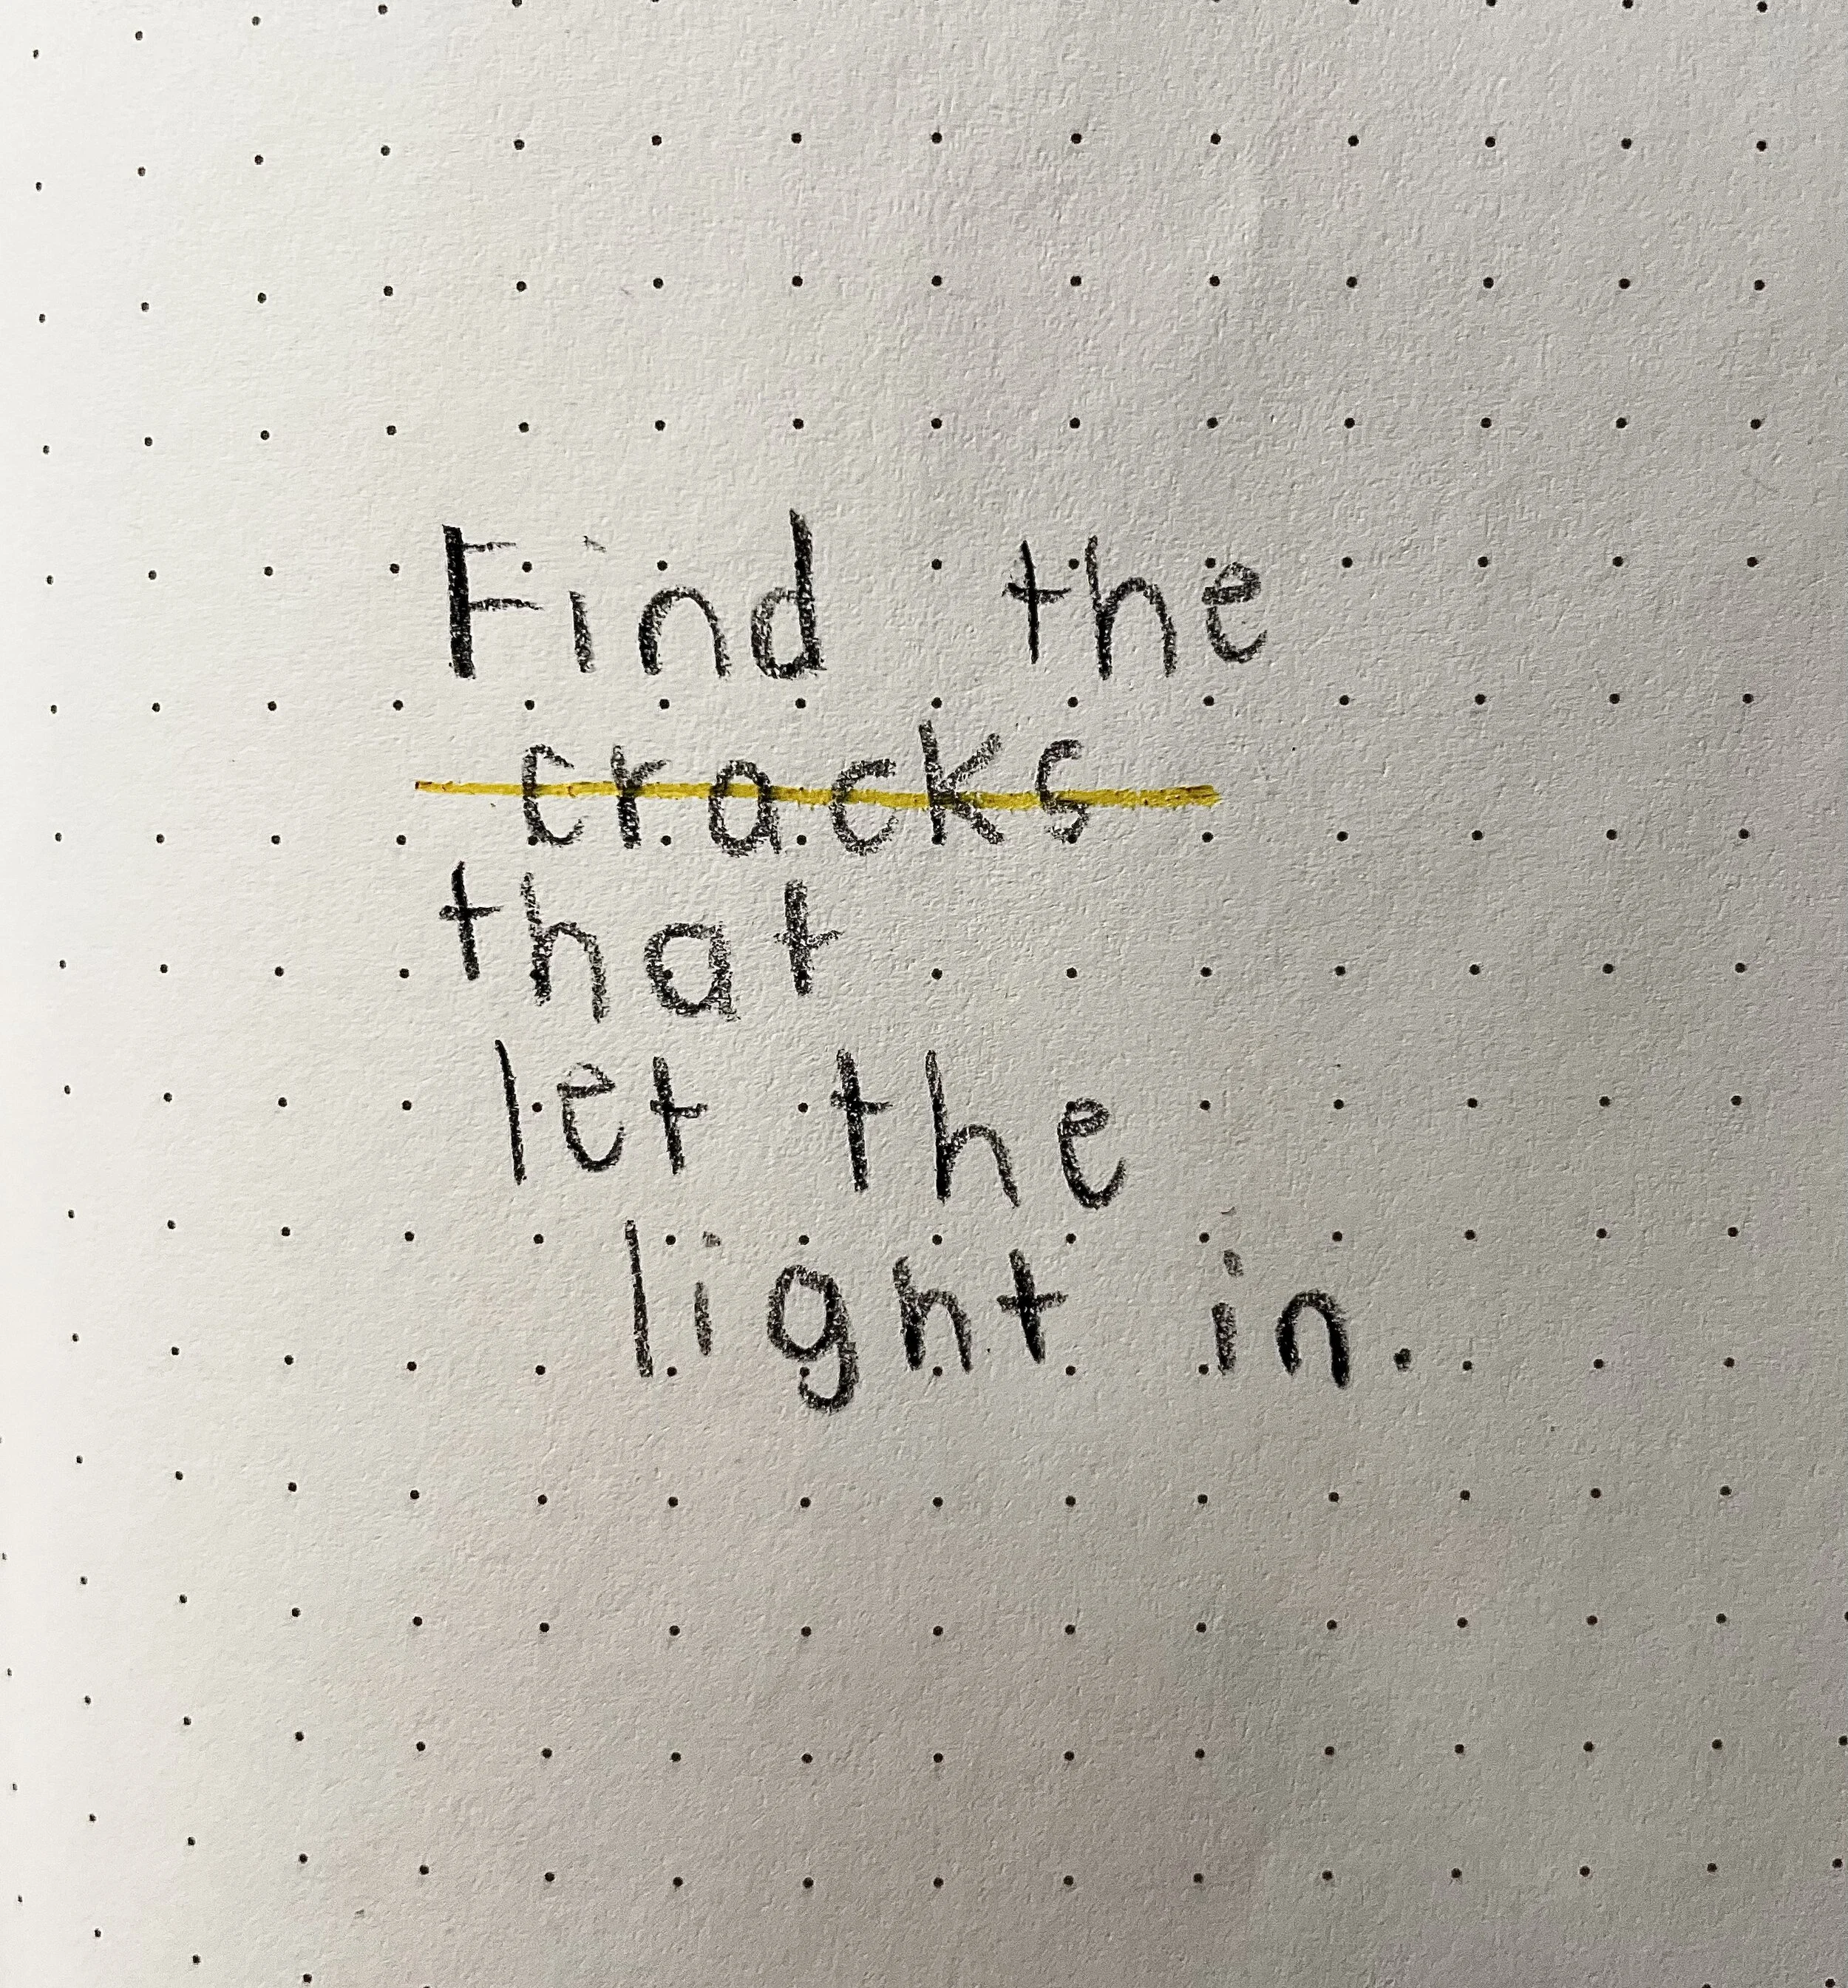 Find the
cracks
that
let the
light in.